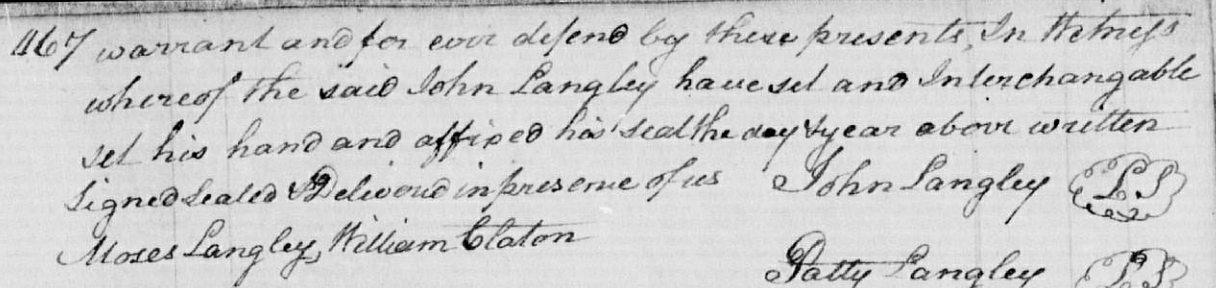 467 warrant and for ever defend by these presents, In Witness
whereof the said John Langley have set and Interchangable
set his hand and affixed his seal the day & year above written
Signed Sealed & Deliverd in presence of us John Langley LS
Moses Langley, William Claton
Patty Langley LS